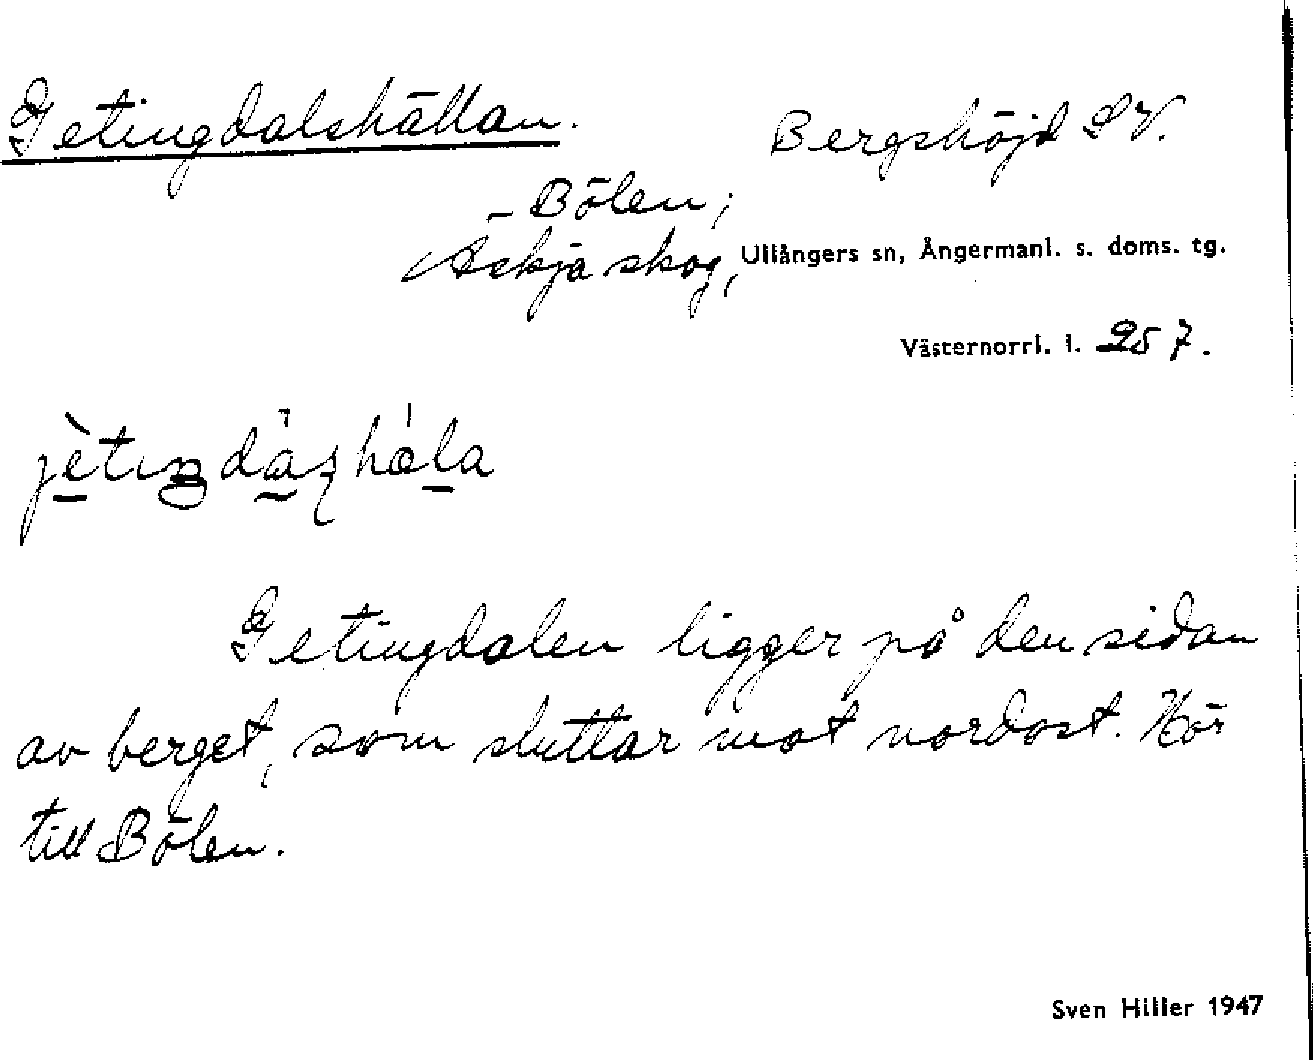 Getingdalshällan.
Bergshöjd SV.
Bölen;
Äskja skog, Ullångers sn, Ångermanl. s. doms. tg.
Västernorrl. l. 257.
Getingdalen ligger på den sidan
av berget, som sluttar mot nordost. Hör
till Bölen.
Sven Hiller 1947